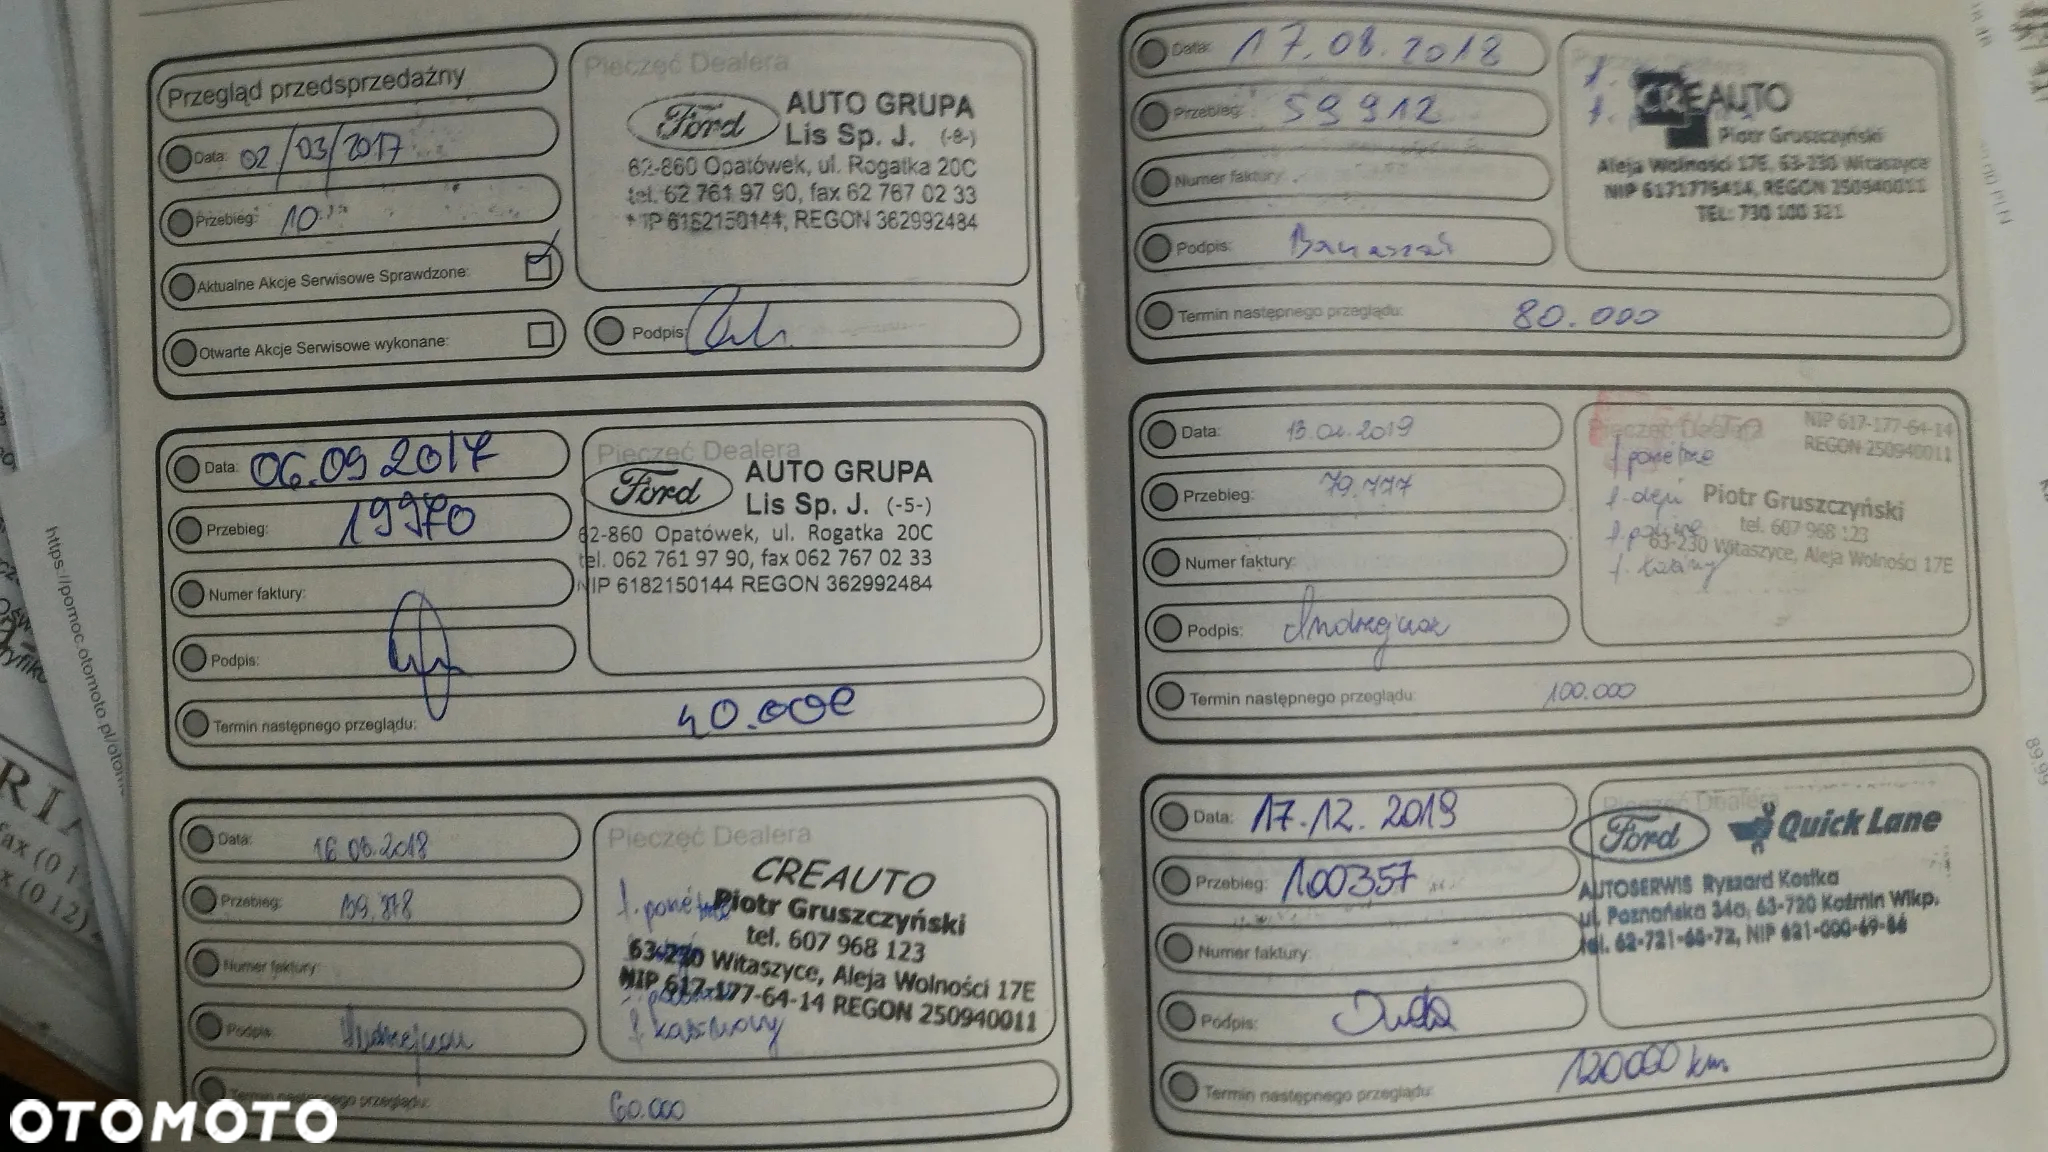 Przegląd przedsprzedażny
Data: 02/03/2017
Przebieg: 10
Aktualne Akcje Serwisowe Sprawdzone:
Otwarte Akcje Serwisowe wykonane:
Pieczęć Dealera
Ford
AUTO GRUPA
Lis Sp. J. (-8-)
62-860 Opatówek, ul. Rogatka 20C
tel. 62 761 97 90, fax 62 767 02 33
NIP 6182150144, REGON 362992484
Podpis:
Data: 06.09 2017
Przebieg: 19970
Numer faktury:
Podpis:
Termin następnego przeglądu: 40.000
Pieczęć Dealera
Ford
AUTO GRUPA
Lis Sp. J. (-5-)
62-860 Opatówek, ul. Rogatka 20C
tel. 062 761 97 90, fax 062 767 02 33
NIP 6182150144 REGON 362992484
Data:
Przebieg:
Numer faktury:
Podpis:
Termin następnego przeglądu: 60.000
Pieczęć Dealera
CREAUTO
Piotr Gruszczyński
tel. 607 968 123
63-230 Witaszyce, Aleja Wolności 17E
NIP 617-177-64-14 REGON 250940011
Data: 17.08.2018
Przebieg: 59912
Numer faktury:
Podpis:
Termin następnego przeglądu: 80.000
CREAUTO
Piotr Gruszczyński
Aleja Wolności 17E, 63-230 Witaszyce
NIP 6171776414, REGON 250940011
TEL: 730 100 321
Data:
Przebieg: 79.777
Numer faktury:
Podpis:
Termin następnego przeglądu: 100.000
Pieczęć Dealera
NIP 617-177-64-14
REGON 250940011
Piotr Gruszczyński
tel. 607 968 123
63-230 Witaszyce, Aleja Wolności 17E
Data: 17.12.2019
Przebieg: 100357
Numer faktury:
Podpis: Duda
Termin następnego przeglądu: 120000 km
Pieczęć Dealera
Ford
Quick Lane
AUTOSERWIS Ryszard Kostka
ul. Poznańska 34a, 63-720 Koźmin Wlkp.
tel. 62-721-66-72, NIP 621-000-69-86
https://pomoc.otomoto.pl/otom
OTOMOTO